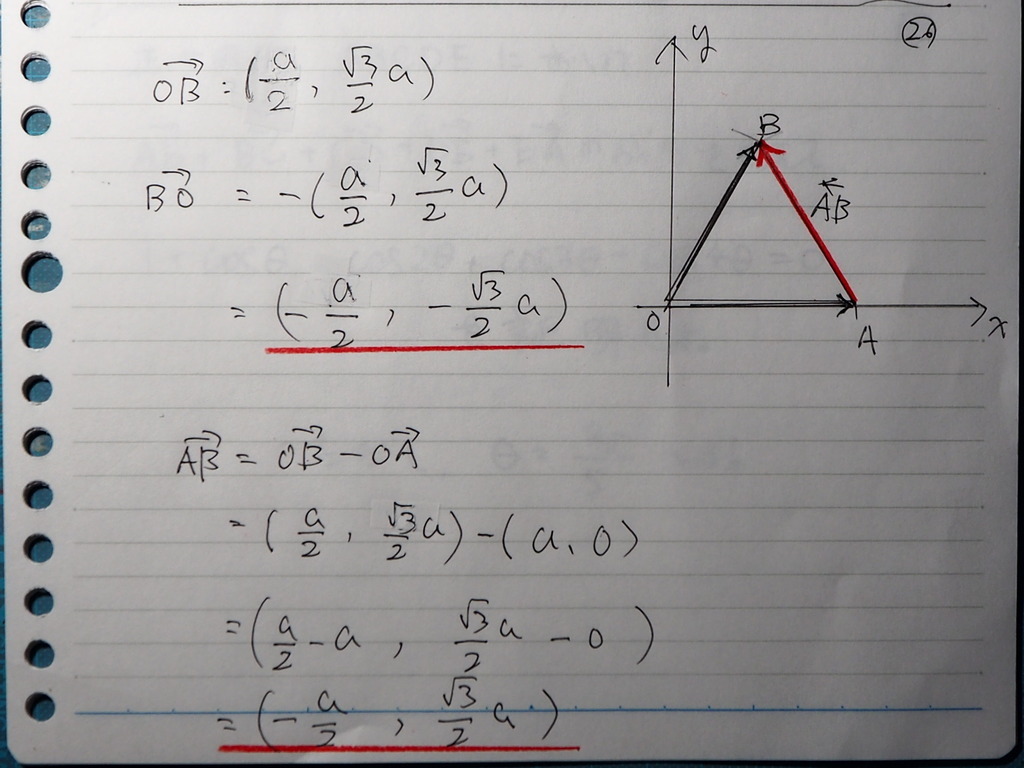 ㉖
OB⃗ : (a/2, √3/2 a)
BO⃗ = -(a/2, √3/2 a)
= (-a/2, -√3/2 a)
y
B
AB⃖
O
A
x
AB⃗ = OB⃗ - OA⃗
= (a/2, √3/2 a) - (a, 0)
= (a/2 - a, √3/2 a - 0)
= (-a/2, √3/2 a)